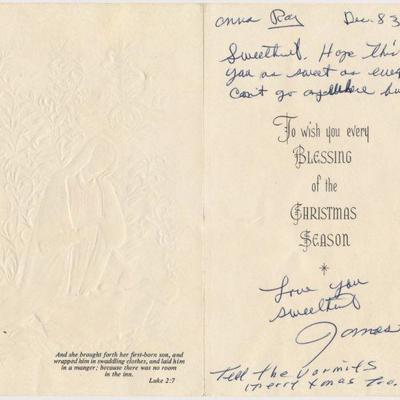 And she brought forth her first-born son, and
wrapped him in swaddling clothes, and laid him
in a manger; because there was no room
in the inn.
Luke 2:7
Anna Ray Dec. 83
Sweethut. Hope this
you as sweet as ever
Can't go anywhere but
To wish you every
BLESSING
of the
CHRISTMAS
SEASON
Love you
sweethut
James
Tell the varmits
merry xmas too.